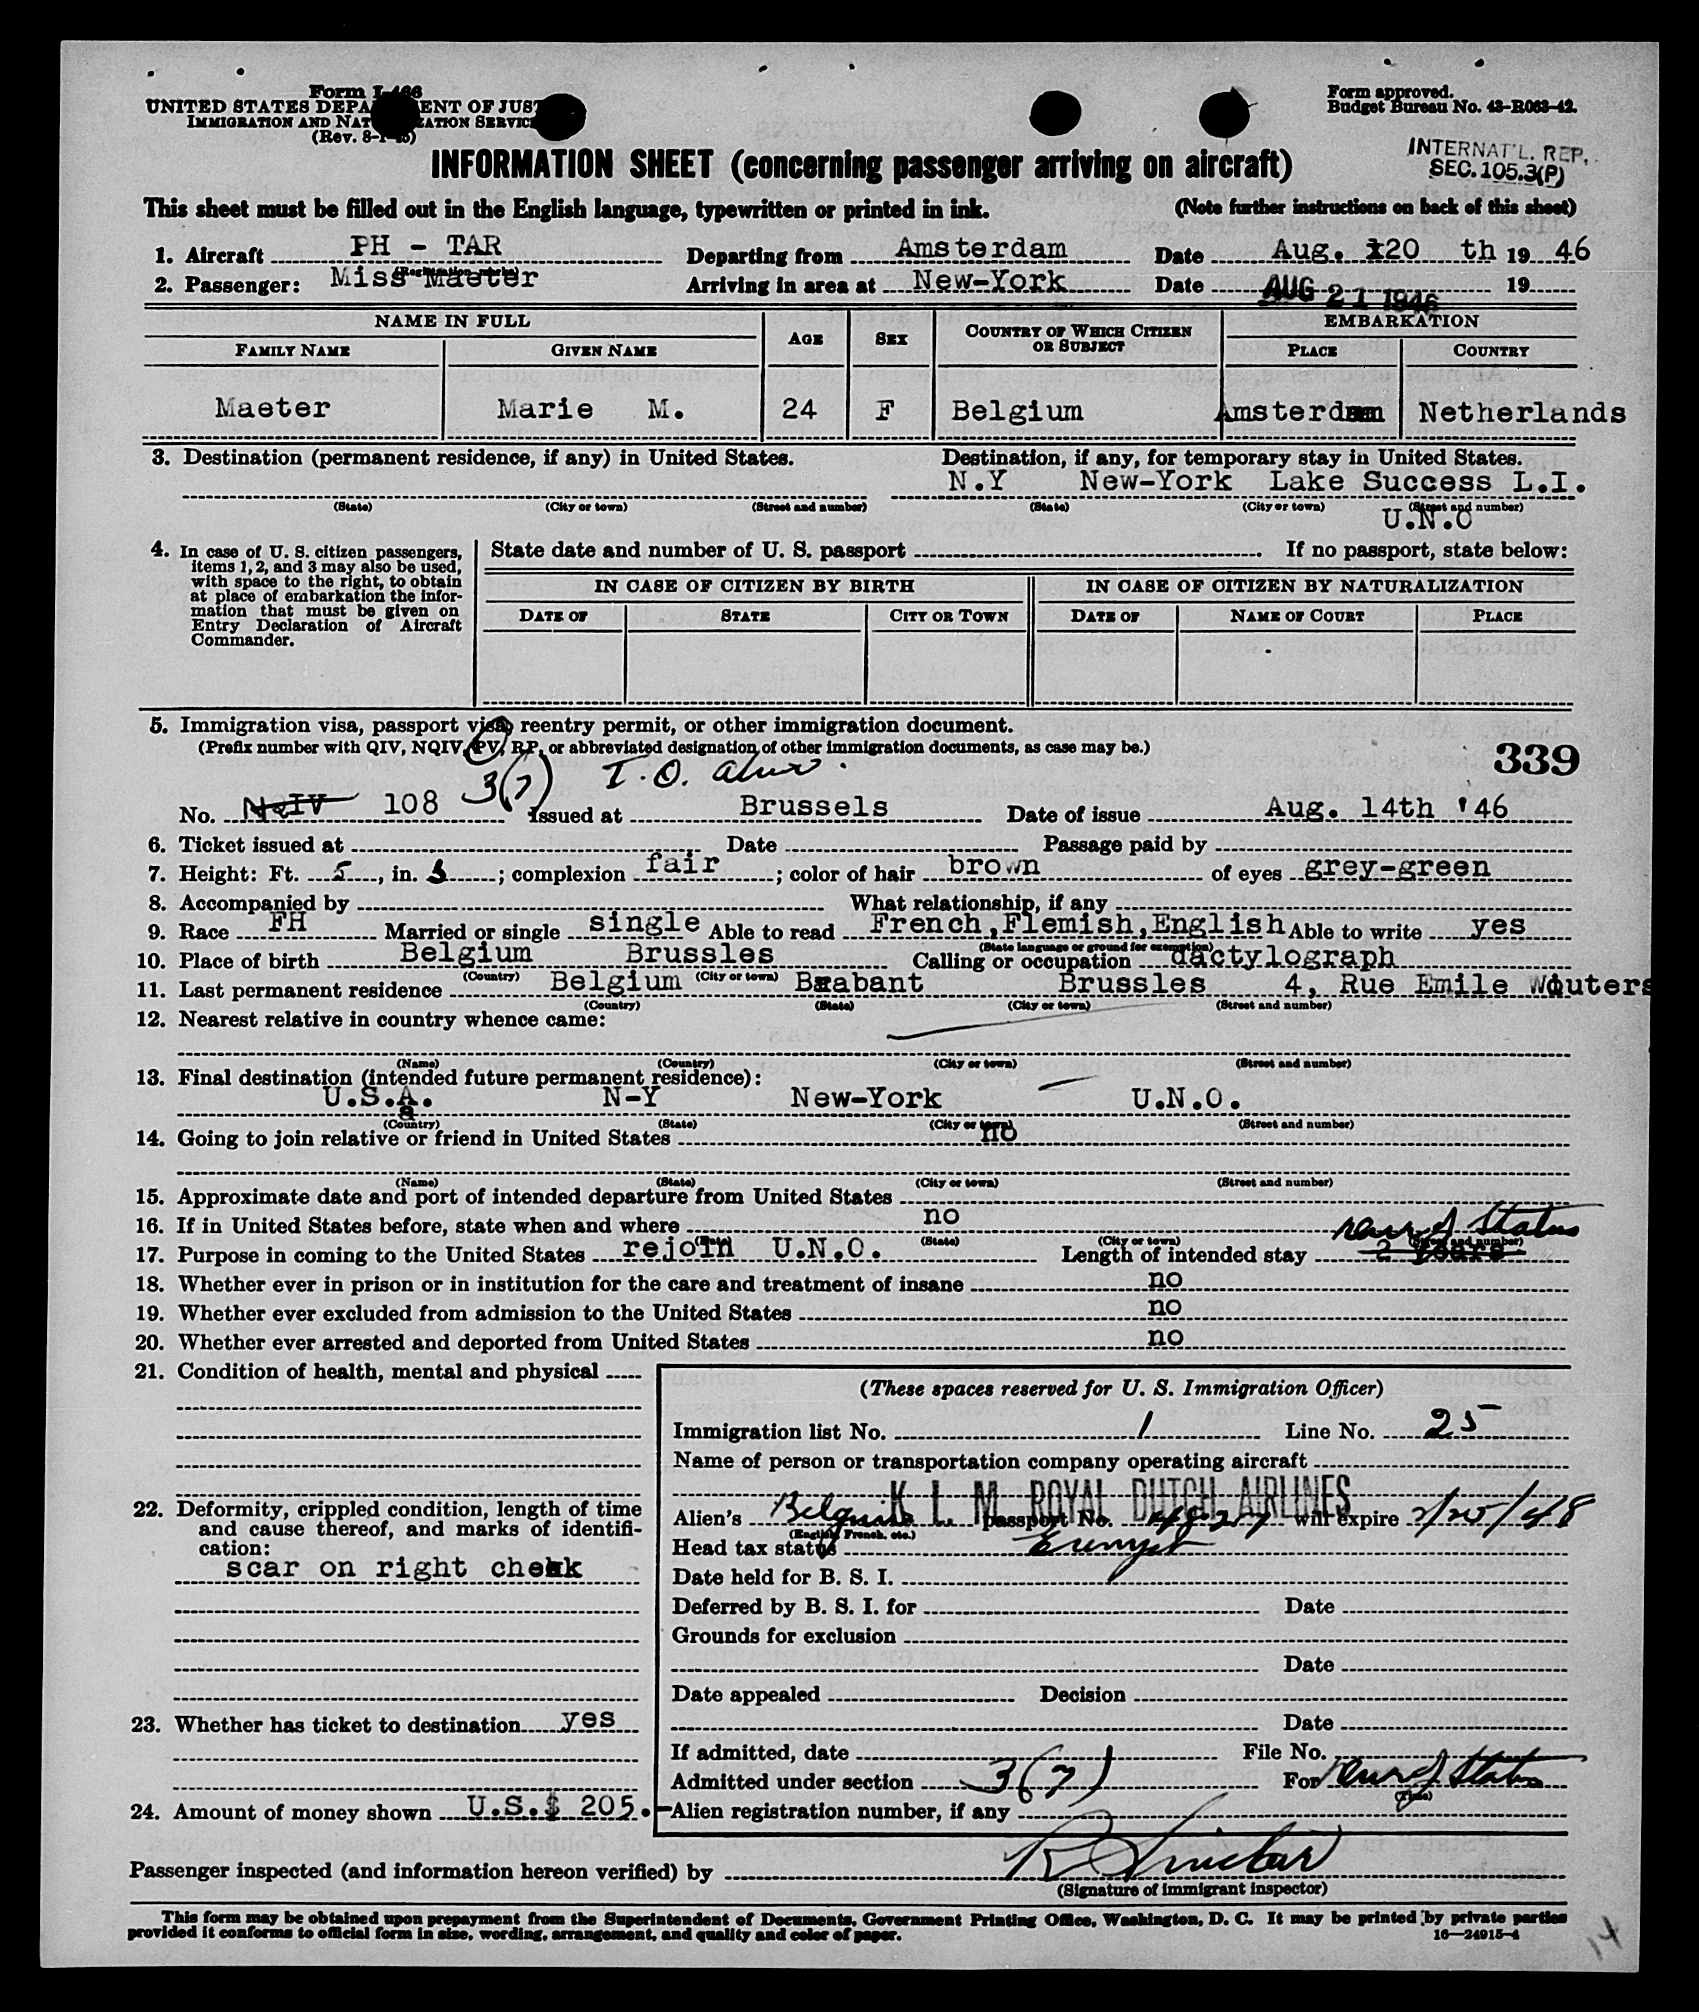 Form I-466
UNITED STATES DEPARTMENT OF JUSTICE
IMMIGRATION AND NATURALIZATION SERVICE
(Rev. 8-1-45)
Form approved.
Budget Bureau No. 43-R063-42.
INTERNAT'L. REP.
SEC. 105.3(P)
INFORMATION SHEET (concerning passenger arriving on aircraft)
This sheet must be filled out in the English language, typewritten or printed in ink. (Note further instructions on back of this sheet)
1. Aircraft PH - TAR Departing from Amsterdam Date Aug. 20 th 19 46
(Registration marks)
2. Passenger: Miss Maeter Arriving in area at New-York Date AUG 21 1946 19
NAME IN FULL AGE SEX COUNTRY OF WHICH CITIZEN OR SUBJECT EMBARKATION
FAMILY NAME GIVEN NAME PLACE COUNTRY
Maeter Marie M. 24 F Belgium Amsterdam Netherlands
3. Destination (permanent residence, if any) in United States. Destination, if any, for temporary stay in United States.
N.Y New-York Lake Success L.I.
(State) (City or town) (Street and number) (State) (City or town) (Street and number)
U.N.O
4. In case of U. S. citizen passengers, items 1, 2, and 3 may also be used, with space to the right, to obtain at place of embarkation the information that must be given on Entry Declaration of Aircraft Commander.
State date and number of U. S. passport If no passport, state below:
IN CASE OF CITIZEN BY BIRTH IN CASE OF CITIZEN BY NATURALIZATION
DATE OF STATE CITY OR TOWN DATE OF NAME OF COURT PLACE
5. Immigration visa, passport visa, reentry permit, or other immigration document.
(Prefix number with QIV, NQIV, PV, RP, or abbreviated designation of other immigration documents, as case may be.)
339
3(7) I.O.
No. NQIV 108 Issued at Brussels Date of issue Aug. 14th '46
6. Ticket issued at Date Passage paid by
7. Height: Ft. 5, in. 3; complexion fair; color of hair brown of eyes grey-green
8. Accompanied by What relationship, if any
9. Race FH Married or single single Able to read French,Flemish,English Able to write yes
(State language or ground for exemption)
10. Place of birth Belgium Brussles Calling or occupation dactylograph
(Country) (City or town)
11. Last permanent residence Belgium Brabant Brussles 4, Rue Emile Wouters
(Country) (State) (City or town) (Street and number)
12. Nearest relative in country whence came:
(Name) (Country) (City or town) (Street and number)
13. Final destination (intended future permanent residence):
U.S.A. N-Y New-York U.N.O.
(Country) (State) (City or town) (Street and number)
14. Going to join relative or friend in United States no
(Name) (State) (City or town) (Street and number)
15. Approximate date and port of intended departure from United States
16. If in United States before, state when and where no
(Date) (State) (City or town) (Street and number)
17. Purpose in coming to the United States rejoin U.N.O. Length of intended stay 2 years Status
18. Whether ever in prison or in institution for the care and treatment of insane no
19. Whether ever excluded from admission to the United States no
20. Whether ever arrested and deported from United States no
21. Condition of health, mental and physical
22. Deformity, crippled condition, length of time and cause thereof, and marks of identification:
scar on right cheek
23. Whether has ticket to destination yes
24. Amount of money shown U.S.$ 205.-
(These spaces reserved for U. S. Immigration Officer)
Immigration list No. 1 Line No. 25
Name of person or transportation company operating aircraft
K L M ROYAL DUTCH AIRLINES
Alien's Belgian passport No. will expire
(English, French, etc.)
Head tax status Exempt
Date held for B. S. I.
Deferred by B. S. I. for Date
Grounds for exclusion
Date
Date appealed Decision
Date
If admitted, date File No.
Admitted under section 3(7) For Status
(Time)
Alien registration number, if any
Passenger inspected (and information hereon verified) by R Sinclair
(Signature of immigrant inspector)
This form may be obtained upon prepayment from the Superintendent of Documents, Government Printing Office, Washington, D. C. It may be printed by private parties
provided it conforms to official form in size, wording, arrangement, and quality and color of paper.
16—24915-4
14